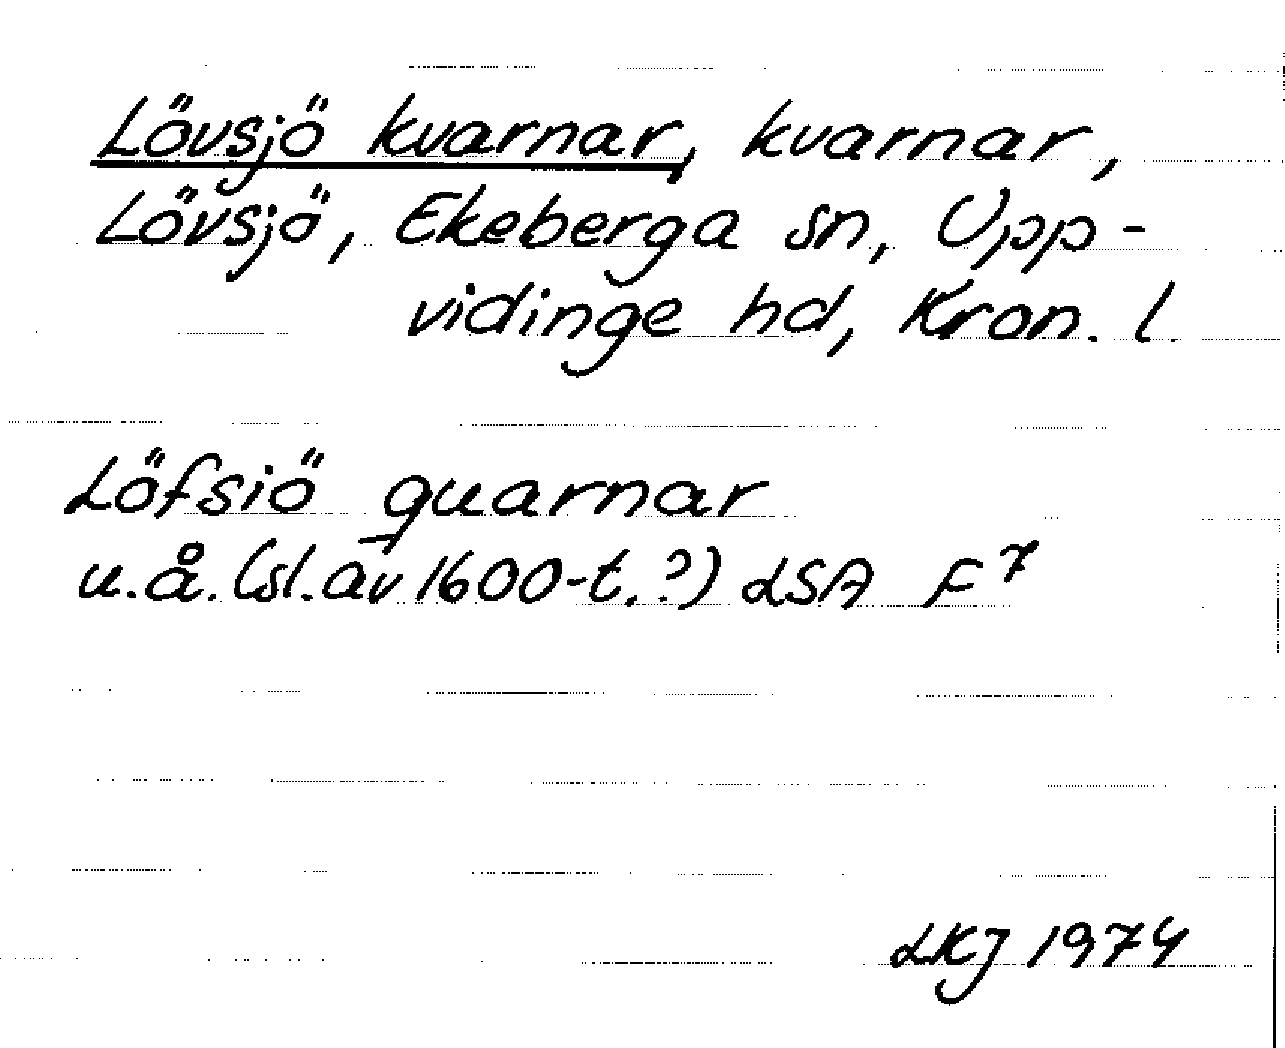 Lövsjö kvarnar, kvarnar,
Lövsjö, Ekeberga sn, Upp-
vidinge hd, Kron. l.
Löfsiö quarnar
u.å. (sl. av 1600-t.?) LSA F7
LKJ 1974